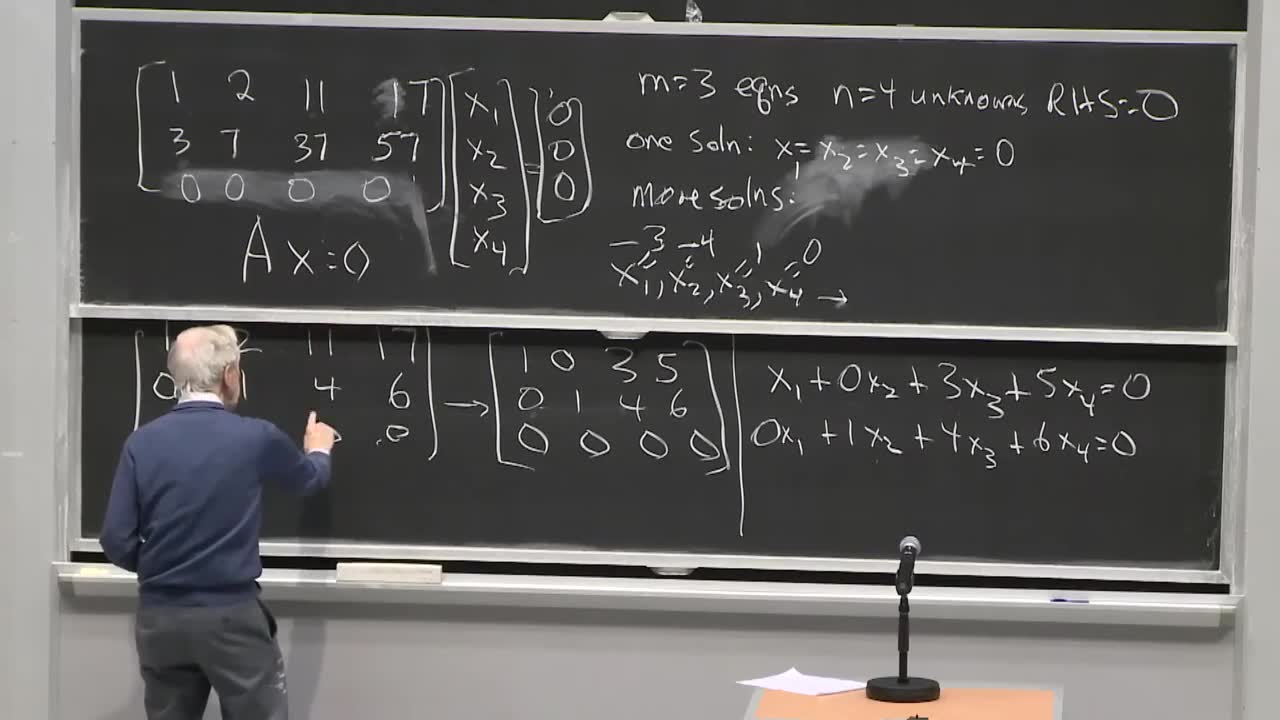 1 2 11 17 x1 0
3 7 37 57 x2 = 0
0 0 0 0 x3 0
x4
A x = 0
m=3 eqns n=4 unknowns RHS=0
one soln: x1=x2=x3=x4=0
more solns:
-3 -4 1 0
x1, x2, x3, x4 →
1 2 11 17
0 1 4 6
0 .0
→ 1 0 3 5
0 1 4 6
0 0 0 0
x1+0x2+3x3+5x4=0
0x1+1x2+4x3+6x4=0